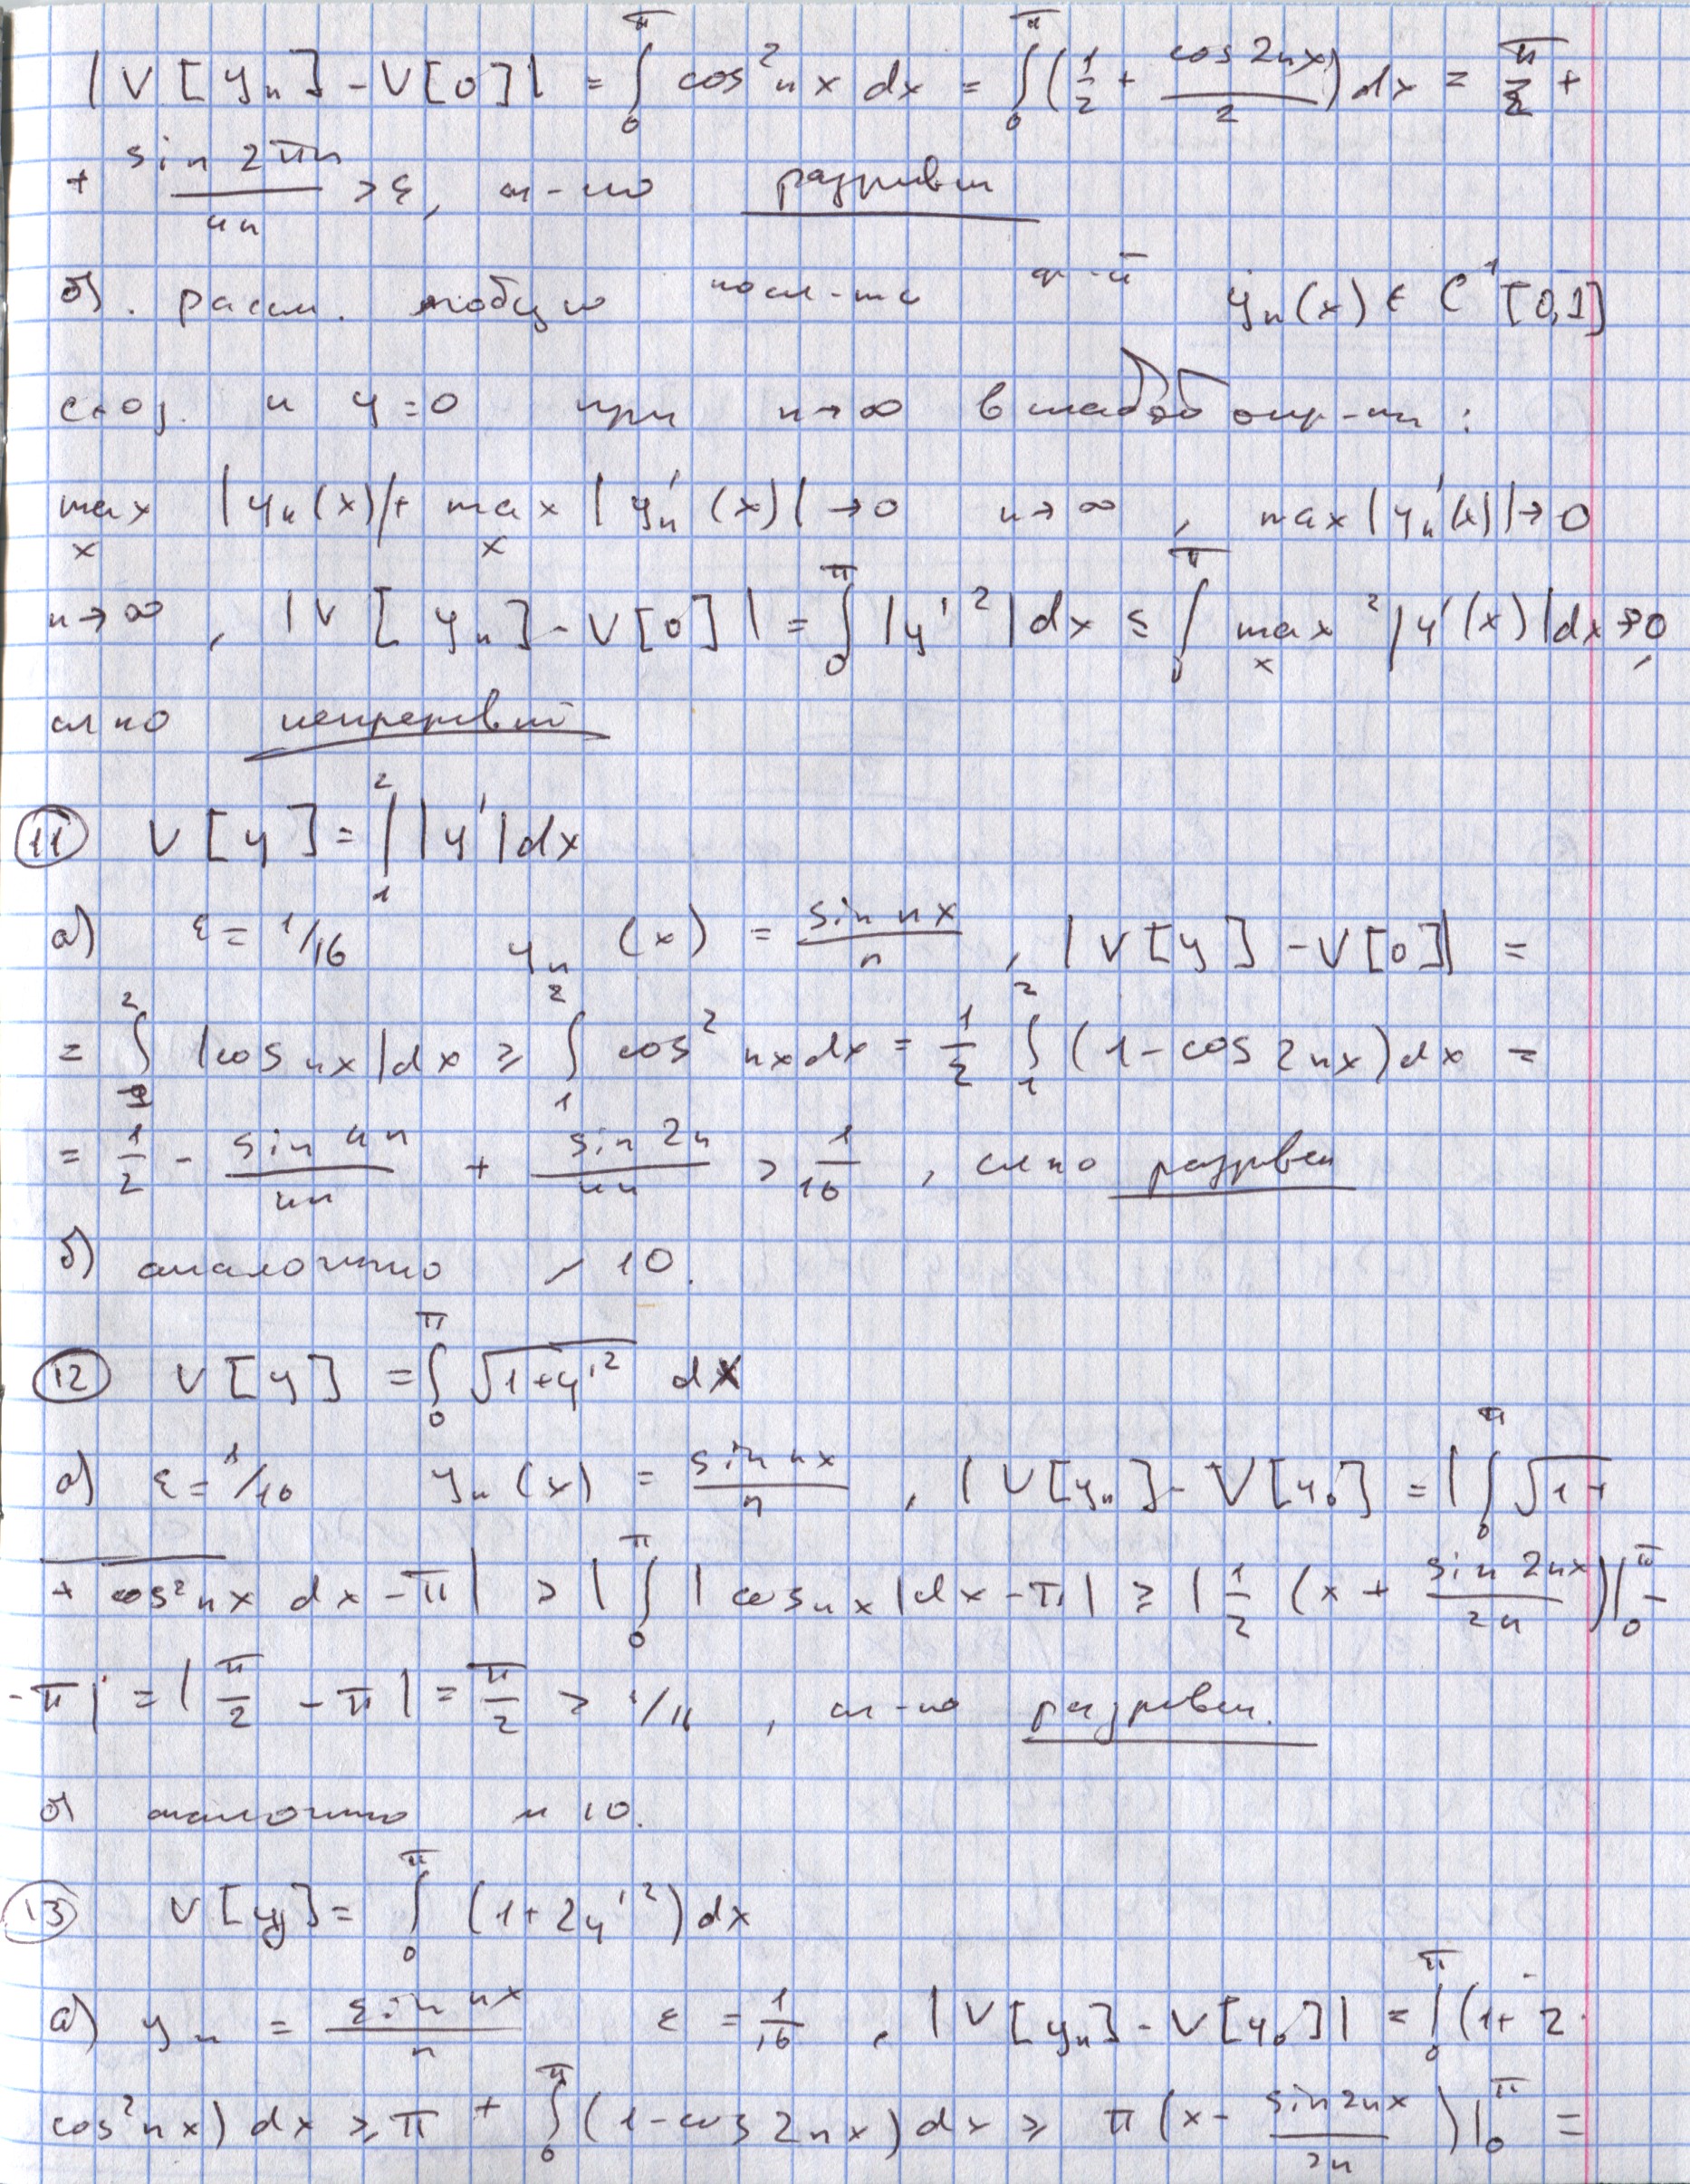 |V[yₙ] - V[0]| = ∫₀^π cos²nx dx = ∫₀^π (1/2 + cos2nx/2) dx = π/2 +
+ sin 2πn / 4n > ε, сл-но разрывен
б). рассм. любую посл-ть ф-й yₙ(x) ∈ C¹[0,1]
сход. к y=0 при n→∞ в слабой окр-ти :
max_x |yₙ(x)| + max_x |yₙ'(x)| → 0 n→∞ , max|yₙ'(x)| → 0
n→∞ , |V[yₙ] - V[0]| = ∫₀^π |y'²| dx ≤ ∫₀^π max_x ²|y'(x)| dx → 0,
сл но непрерывный
⑪ V[y] = ∫₁² |y'| dx
а) ε = 1/16 yₙ(x) = sin nx / n , |V[y] - V[0]| =
= ∫₁² |cos nx| dx ≥ ∫₁² cos² nx dx = 1/2 ∫₁² (1 - cos 2nx) dx =
= 1/2 - sin 4n / 4n + sin 2n / 4n > 1/16 , сл но разрывен
б) аналогично 10.
⑫ V[y] = ∫₀^π √(1+y'²) dx
а) ε = 1/10 yₙ(x) = sin nx / n , |V[yₙ] - V[y₀] = | ∫₀^π √1+
+ cos²nx dx - π| > | ∫₀^π |cos nx| dx - π| ≥ | 1/2 (x + sin 2nx / 2n)|₀^π -
- π| = | π/2 - π| = π/2 > 1/16 , сл-но разрывен.
б) аналогично 10.
⑬ V[y] = ∫₀^π (1+2y'²) dx
а) yₙ = sin nx / n ε = 1/16 , |V[yₙ] - V[y₀]| = ∫₀^π (1+ 2·
cos²nx) dx ≥ π + ∫₀^π (1-cos 2nx) dx ≥ π (x - sin2nx / 2n)|₀^π =